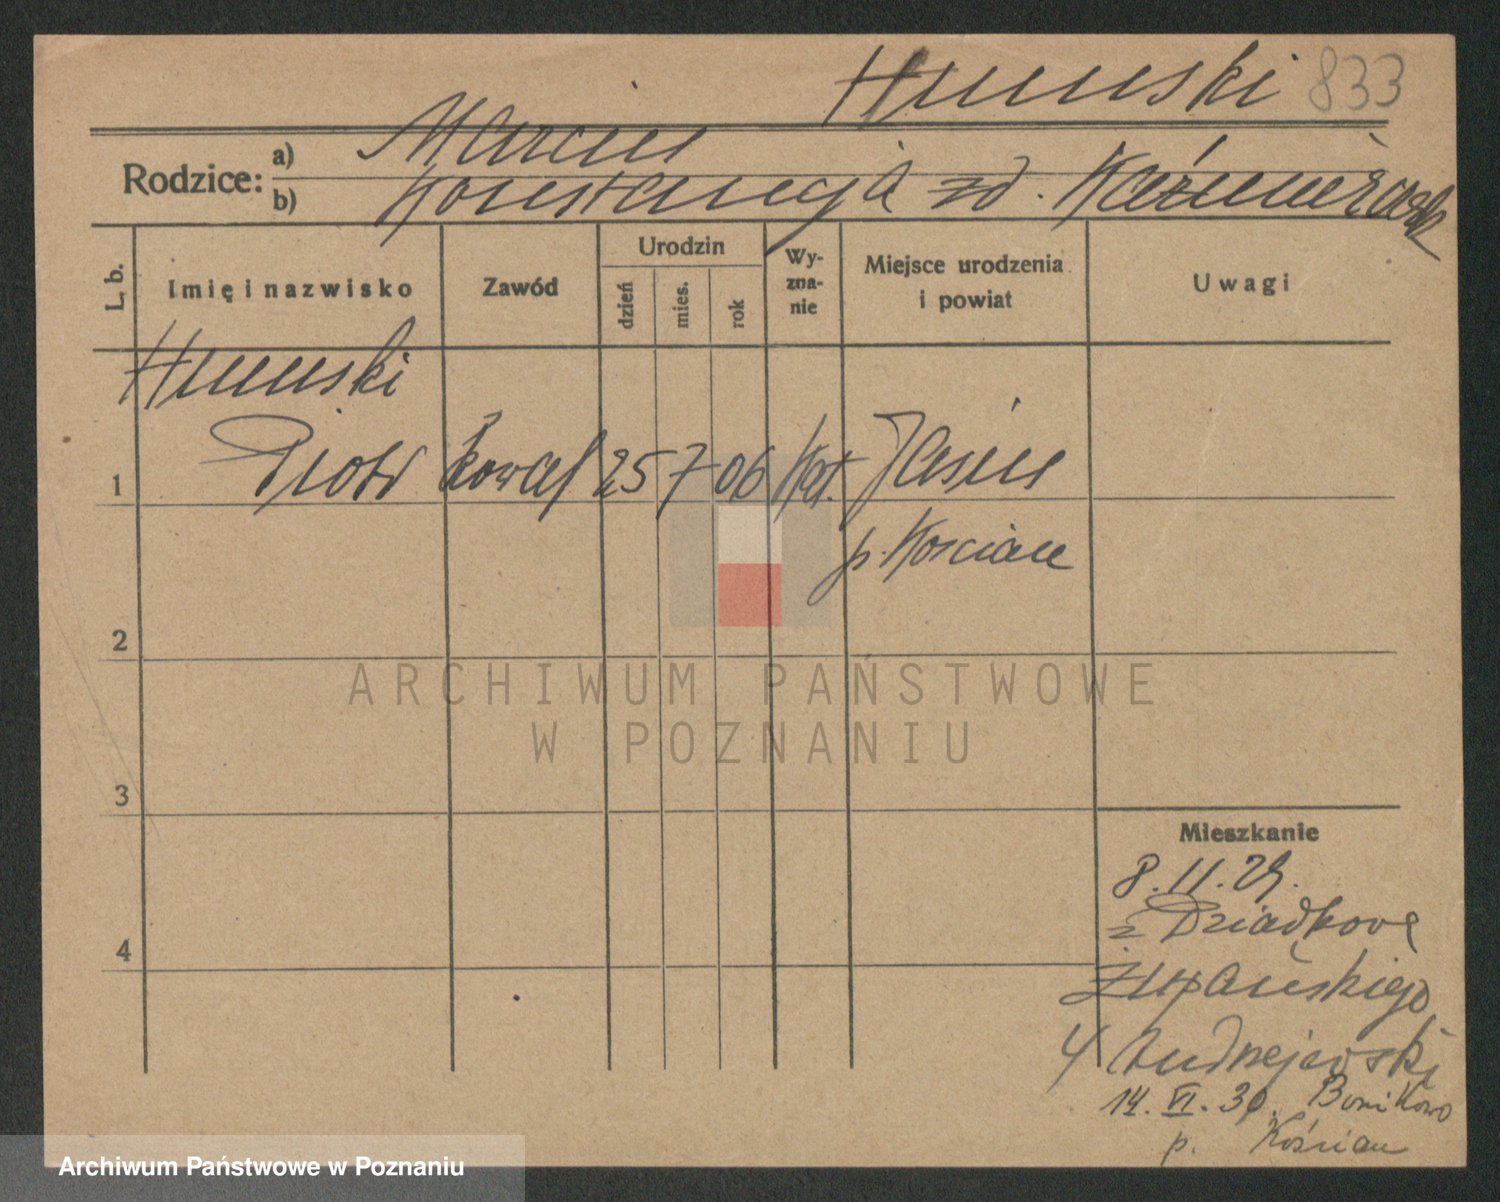 Humski 833
Rodzice: a) Marcin
b) Konstancja zd. Kaźmierczak
L. b. Imię i nazwisko Zawód Urodzin dzień mies. rok Wy-zna-nie Miejsce urodzenia i powiat Uwagi
Humski
1 Piotr kowal 25 7 06 kat. Jasin
p. Kościan
2
ARCHIWUM PAŃSTWOWE
W POZNANIU
3
Mieszkanie
8.11.29.
z Dziadkowe
4
Żupańskiego
4 Andrzejewski
14. VI. 30. Bonikowo
p. Kościan
Archiwum Państwowe w Poznaniu